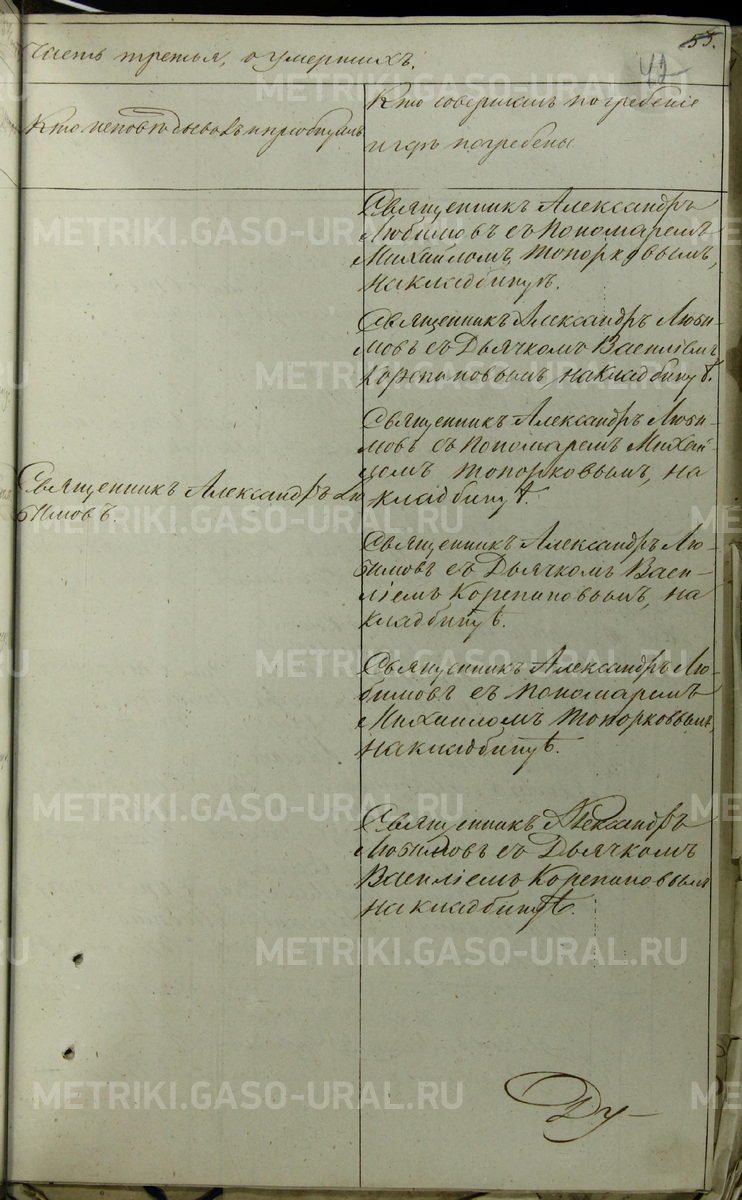 55.
42
Часть третья, о умершихъ.
Кто исповѣдывалъ и приобщалъ
Кто совершалъ погребеніе
и гдѣ погребены
Священникъ Александръ
Любимовъ съ Пономаремъ
Михайломъ Топорковымъ,
на кладбищѣ.
Священникъ Александръ Люби-
мовъ съ Дьячкомъ Василіемъ
Корепановымъ, на кладбищѣ.
Священникъ Александръ Люби-
мовъ съ Пономаремъ Михай-
ломъ Топорковымъ, на
кладбищѣ.
Священникъ Александръ Лю-
бимовъ.
Священникъ Александръ Лю-
бимовъ съ Дьячкомъ Васи-
ліемъ Корепановымъ, на
кладбищѣ.
Священникъ Александръ Лю-
бимовъ съ Пономаремъ
Михаиломъ Топорковымъ,
на кладбищѣ.
Священникъ Александръ
Любимовъ съ Дьячкомъ
Василіемъ Корепановымъ
на кладбищѣ.
Ду-
METRIKI.GASO-URAL.RU